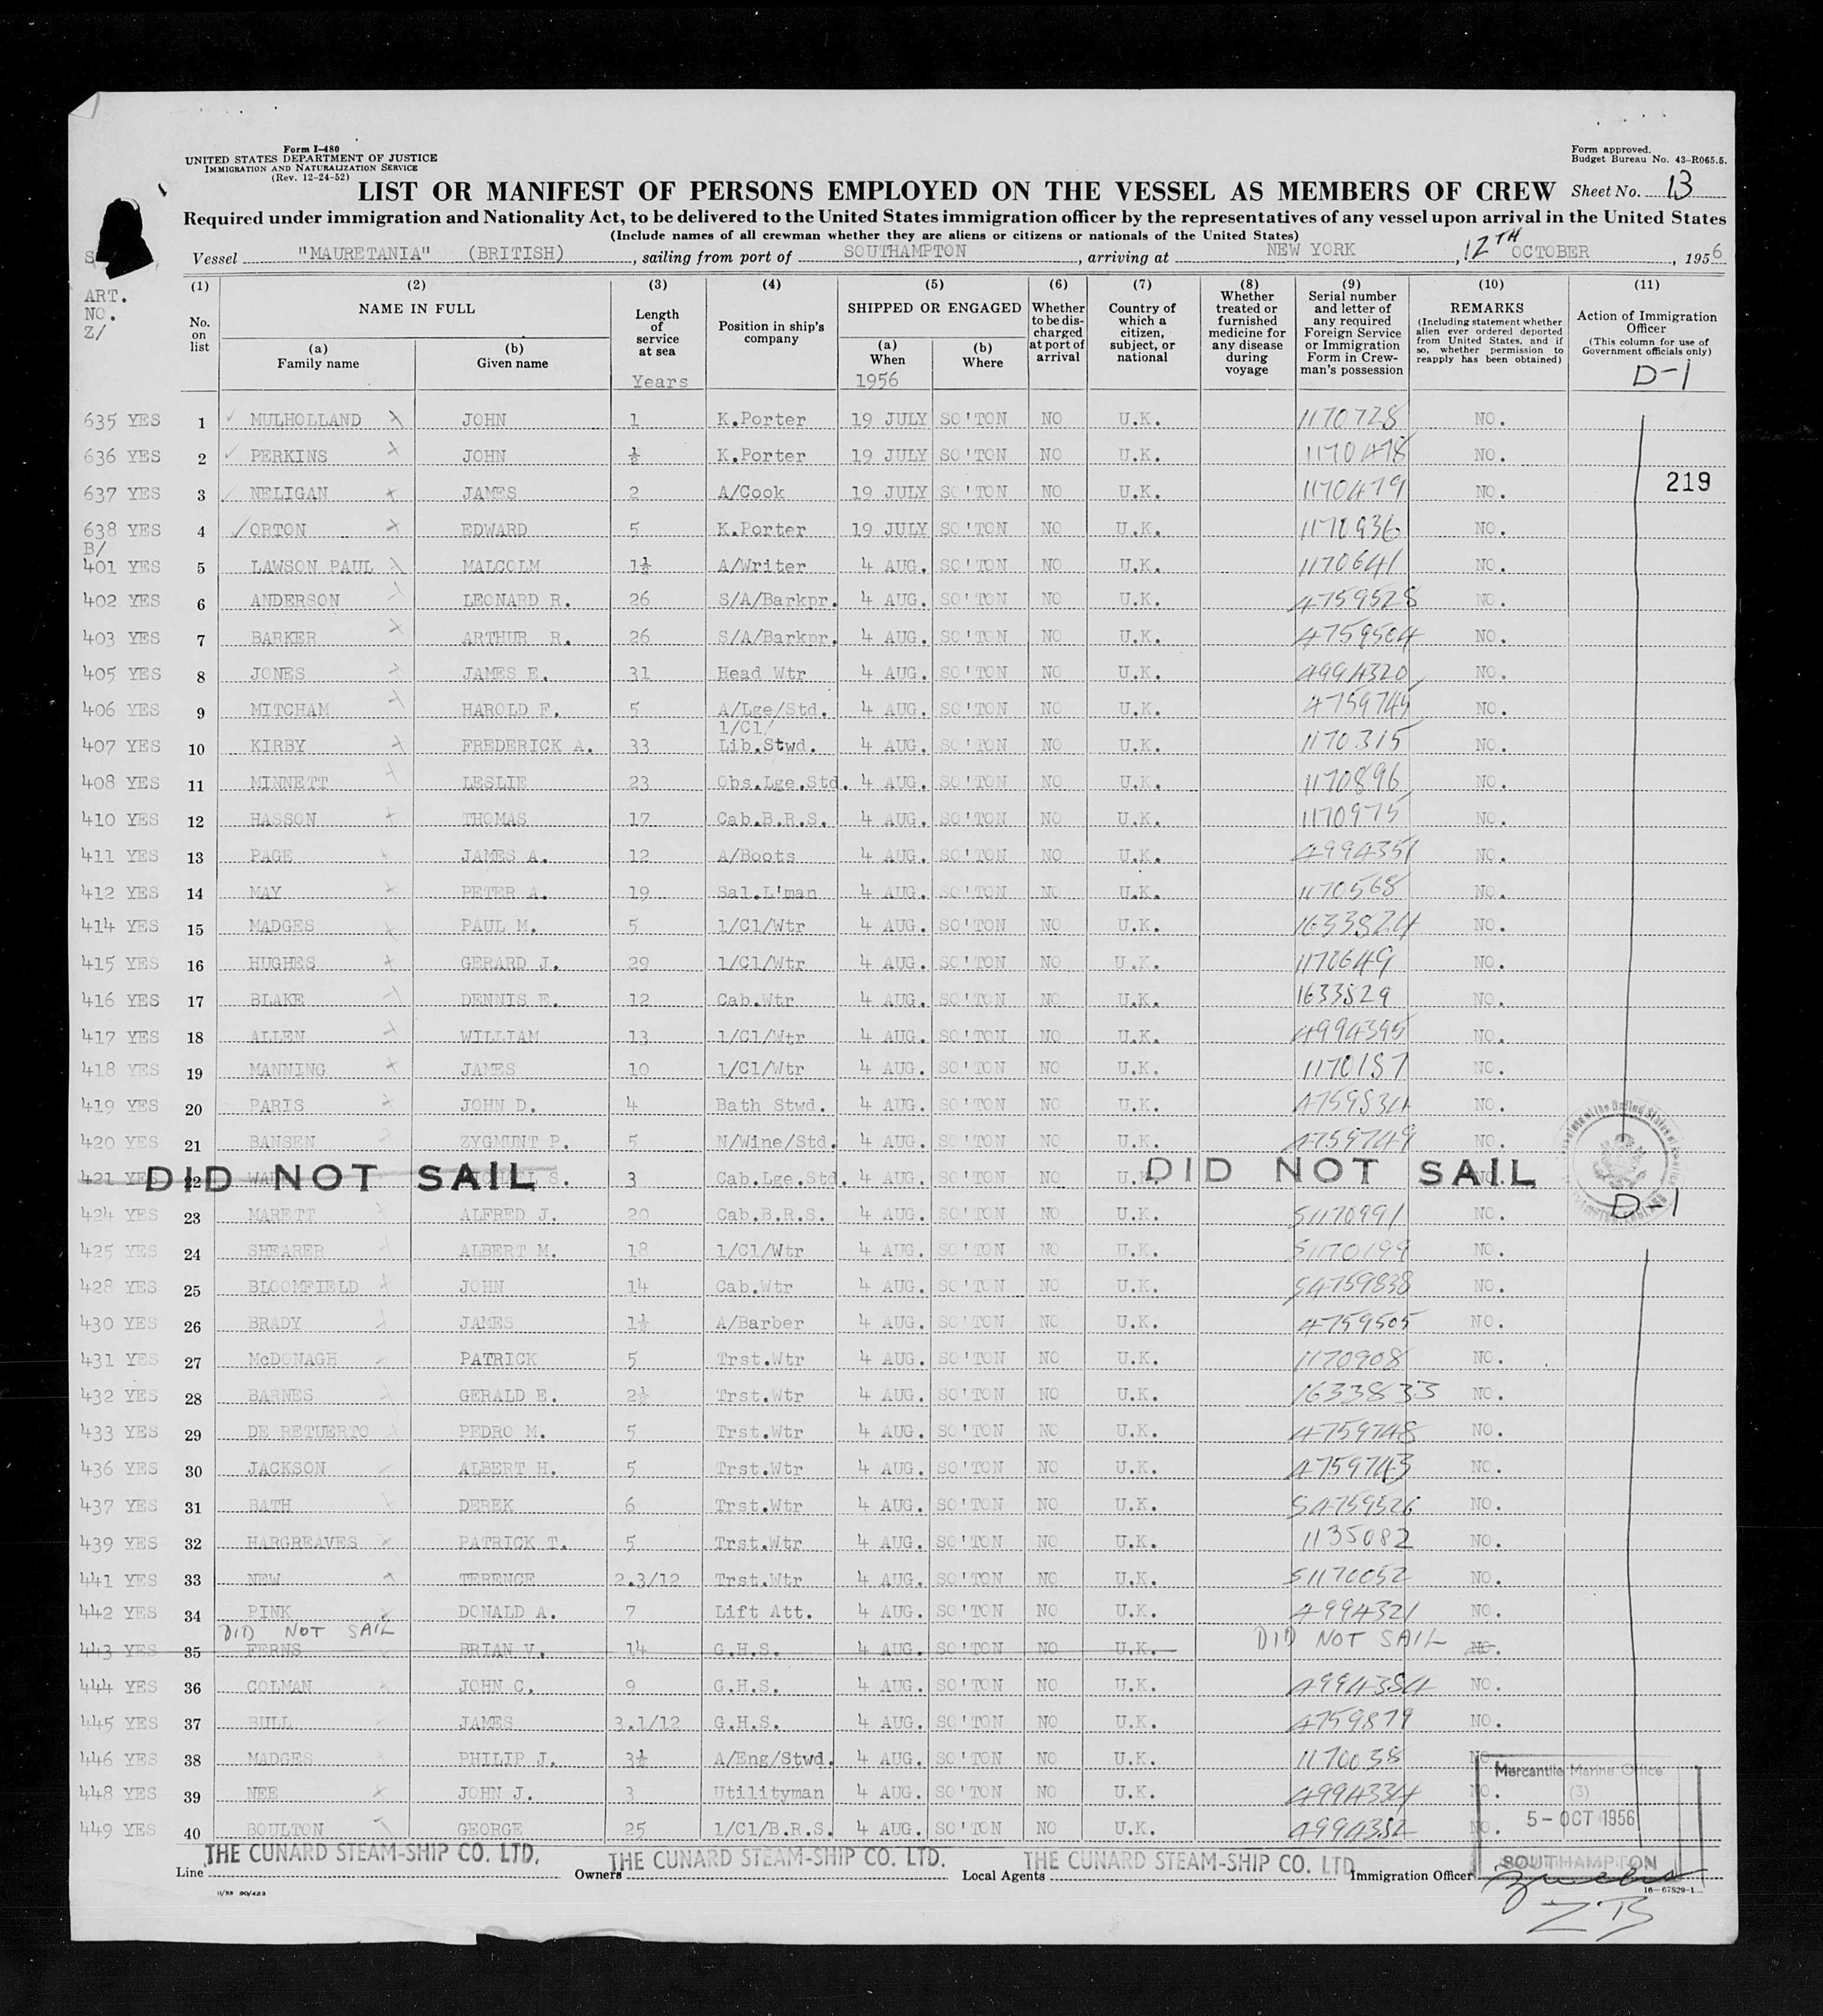 Form I-480
UNITED STATES DEPARTMENT OF JUSTICE
IMMIGRATION AND NATURALIZATION SERVICE
(Rev. 12-24-52)
Form approved.
Budget Bureau No. 43-R065.5.
LIST OR MANIFEST OF PERSONS EMPLOYED ON THE VESSEL AS MEMBERS OF CREW Sheet No. 13
Required under immigration and Nationality Act, to be delivered to the United States immigration officer by the representatives of any vessel upon arrival in the United States
(Include names of all crewman whether they are aliens or citizens or nationals of the United States)
Vessel "MAURETANIA" (BRITISH), sailing from port of SOUTHAMPTON, arriving at NEW YORK, 12TH OCTOBER, 1956
ART. NO. Z/
(1) No. on list
(2) NAME IN FULL (a) Family name (b) Given name
(3) Length of service at sea Years
(4) Position in ship's company
(5) SHIPPED OR ENGAGED (a) When 1956 (b) Where
(6) Whether to be discharged at port of arrival
(7) Country of which a citizen, subject, or national
(8) Whether treated or furnished medicine for any disease during voyage
(9) Serial number and letter of any required Foreign Service or Immigration Form in Crewman's possession
(10) REMARKS (Including statement whether alien ever ordered deported from United States, and if so, whether permission to reapply has been obtained)
(11) Action of Immigration Officer (This column for use of Government officials only)
D-1
635 YES 1 MULHOLLAND JOHN 1 K.Porter 19 JULY SO'TON NO U.K. 1170728 NO.
636 YES 2 PERKINS JOHN ½ K.Porter 19 JULY SO'TON NO U.K. 1170478 NO.
637 YES 3 NELIGAN JAMES 2 A/Cook 19 JULY SO'TON NO U.K. 1170479 NO. 219
638 YES 4 ORTON EDWARD 5 K.Porter 19 JULY SO'TON NO U.K. 1170936 NO.
B/
401 YES 5 LAWSON PAUL MALCOLM 1½ A/Writer 4 AUG. SO'TON NO U.K. 1170641 NO.
402 YES 6 ANDERSON LEONARD R. 26 S/A/Barkpr. 4 AUG. SO'TON NO U.K. 4759528 NO.
403 YES 7 BARKER ARTHUR R. 26 S/A/Barkpr. 4 AUG. SO'TON NO U.K. 4759504 NO.
405 YES 8 JONES JAMES E. 31 Head Wtr 4 AUG. SO'TON NO U.K. 4994320 NO.
406 YES 9 MITCHAM HAROLD F. 5 A/Lge/Std. 4 AUG. SO'TON NO U.K. 4759745 NO.
1/Cl/
407 YES 10 KIRBY FREDERICK A. 33 Lib.Stwd. 4 AUG. SO'TON NO U.K. 1170315 NO.
408 YES 11 MINNETT LESLIE 23 Obs.Lge.Std. 4 AUG. SO'TON NO U.K. 1170896 NO.
410 YES 12 HASSON THOMAS 17 Cab.B.R.S. 4 AUG. SO'TON NO U.K. 1170975 NO.
411 YES 13 PAGE JAMES A. 12 A/Boots 4 AUG. SO'TON NO U.K. 4994351 NO.
412 YES 14 MAY PETER A. 19 Sal.L'man 4 AUG. SO'TON NO U.K. 1170568 NO.
414 YES 15 MADGES PAUL M. 5 1/Cl/Wtr 4 AUG. SO'TON NO U.K. 1633824 NO.
415 YES 16 HUGHES GERARD J. 29 1/Cl/Wtr 4 AUG. SO'TON NO U.K. 1170649 NO.
416 YES 17 BLAKE DENNIS E. 12 Cab.Wtr 4 AUG. SO'TON NO U.K. 1633829 NO.
417 YES 18 ALLEN WILLIAM 13 1/Cl/Wtr 4 AUG. SO'TON NO U.K. 4994395 NO.
418 YES 19 MANNING JAMES 10 1/Cl/Wtr 4 AUG. SO'TON NO U.K. 1170157 NO.
419 YES 20 PARIS JOHN D. 4 Bath Stwd. 4 AUG. SO'TON NO U.K. 4759834 NO.
420 YES 21 BANSEN ZYGMUNT P. 5 N/Wine/Std. 4 AUG. SO'TON NO U.K. 4759749 NO.
421 YES 22 DID NOT SAIL S. 3 Cab.Lge.Std. 4 AUG. SO'TON NO U.K. DID NOT SAIL NO.
D-1
424 YES 23 MARETT ALFRED J. 20 Cab.B.R.S. 4 AUG. SO'TON NO U.K. S1170991 NO.
425 YES 24 SHEARER ALBERT M. 18 1/Cl/Wtr 4 AUG. SO'TON NO U.K. S1170199 NO.
428 YES 25 BLOOMFIELD JOHN 14 Cab.Wtr 4 AUG. SO'TON NO U.K. S4759838 NO.
430 YES 26 BRADY JAMES 1½ A/Barber 4 AUG. SO'TON NO U.K. 4759505 NO.
431 YES 27 McDONAGH PATRICK 5 Trst.Wtr 4 AUG. SO'TON NO U.K. 1170908 NO.
432 YES 28 BARNES GERALD E. 2½ Trst.Wtr 4 AUG. SO'TON NO U.K. 1633833 NO.
433 YES 29 DE RETUERTO PEDRO M. 5 Trst.Wtr 4 AUG. SO'TON NO U.K. 4759748 NO.
436 YES 30 JACKSON ALBERT H. 5 Trst.Wtr 4 AUG. SO'TON NO U.K. 4759743 NO.
437 YES 31 BATH DEREK 6 Trst.Wtr 4 AUG. SO'TON NO U.K. S4759526 NO.
439 YES 32 HARGREAVES PATRICK T. 5 Trst.Wtr 4 AUG. SO'TON NO U.K. 1135082 NO.
441 YES 33 NEW TERENCE 2.3/12 Trst.Wtr 4 AUG. SO'TON NO U.K. S1170052 NO.
442 YES 34 PINK DONALD A. 7 Lift Att. 4 AUG. SO'TON NO U.K. 4994321 NO.
DID NOT SAIL DID NOT SAIL
443 YES 35 FERNS BRIAN V. 14 G.H.S. 4 AUG. SO'TON NO U.K. NO.
444 YES 36 COLMAN JOHN C. 9 G.H.S. 4 AUG. SO'TON NO U.K. 4994384 NO.
445 YES 37 BULL JAMES 3.1/12 G.H.S. 4 AUG. SO'TON NO U.K. 4759879 NO.
446 YES 38 MADGES PHILIP J. 3½ A/Eng/Stwd. 4 AUG. SO'TON NO U.K. 1170038 NO.
448 YES 39 NEE JOHN J. 3 Utilityman 4 AUG. SO'TON NO U.K. 4994334 NO.
449 YES 40 BOULTON GEORGE 25 1/Cl/B.R.S. 4 AUG. SO'TON NO U.K. 4994352 NO.
Mercantile Marine Office
(3)
5 - OCT 1956
SOUTHAMPTON
Line THE CUNARD STEAM-SHIP CO. LTD. Owners THE CUNARD STEAM-SHIP CO. LTD. Local Agents THE CUNARD STEAM-SHIP CO. LTD. Immigration Officer
11/55 90/423
16-67829-1
ZB